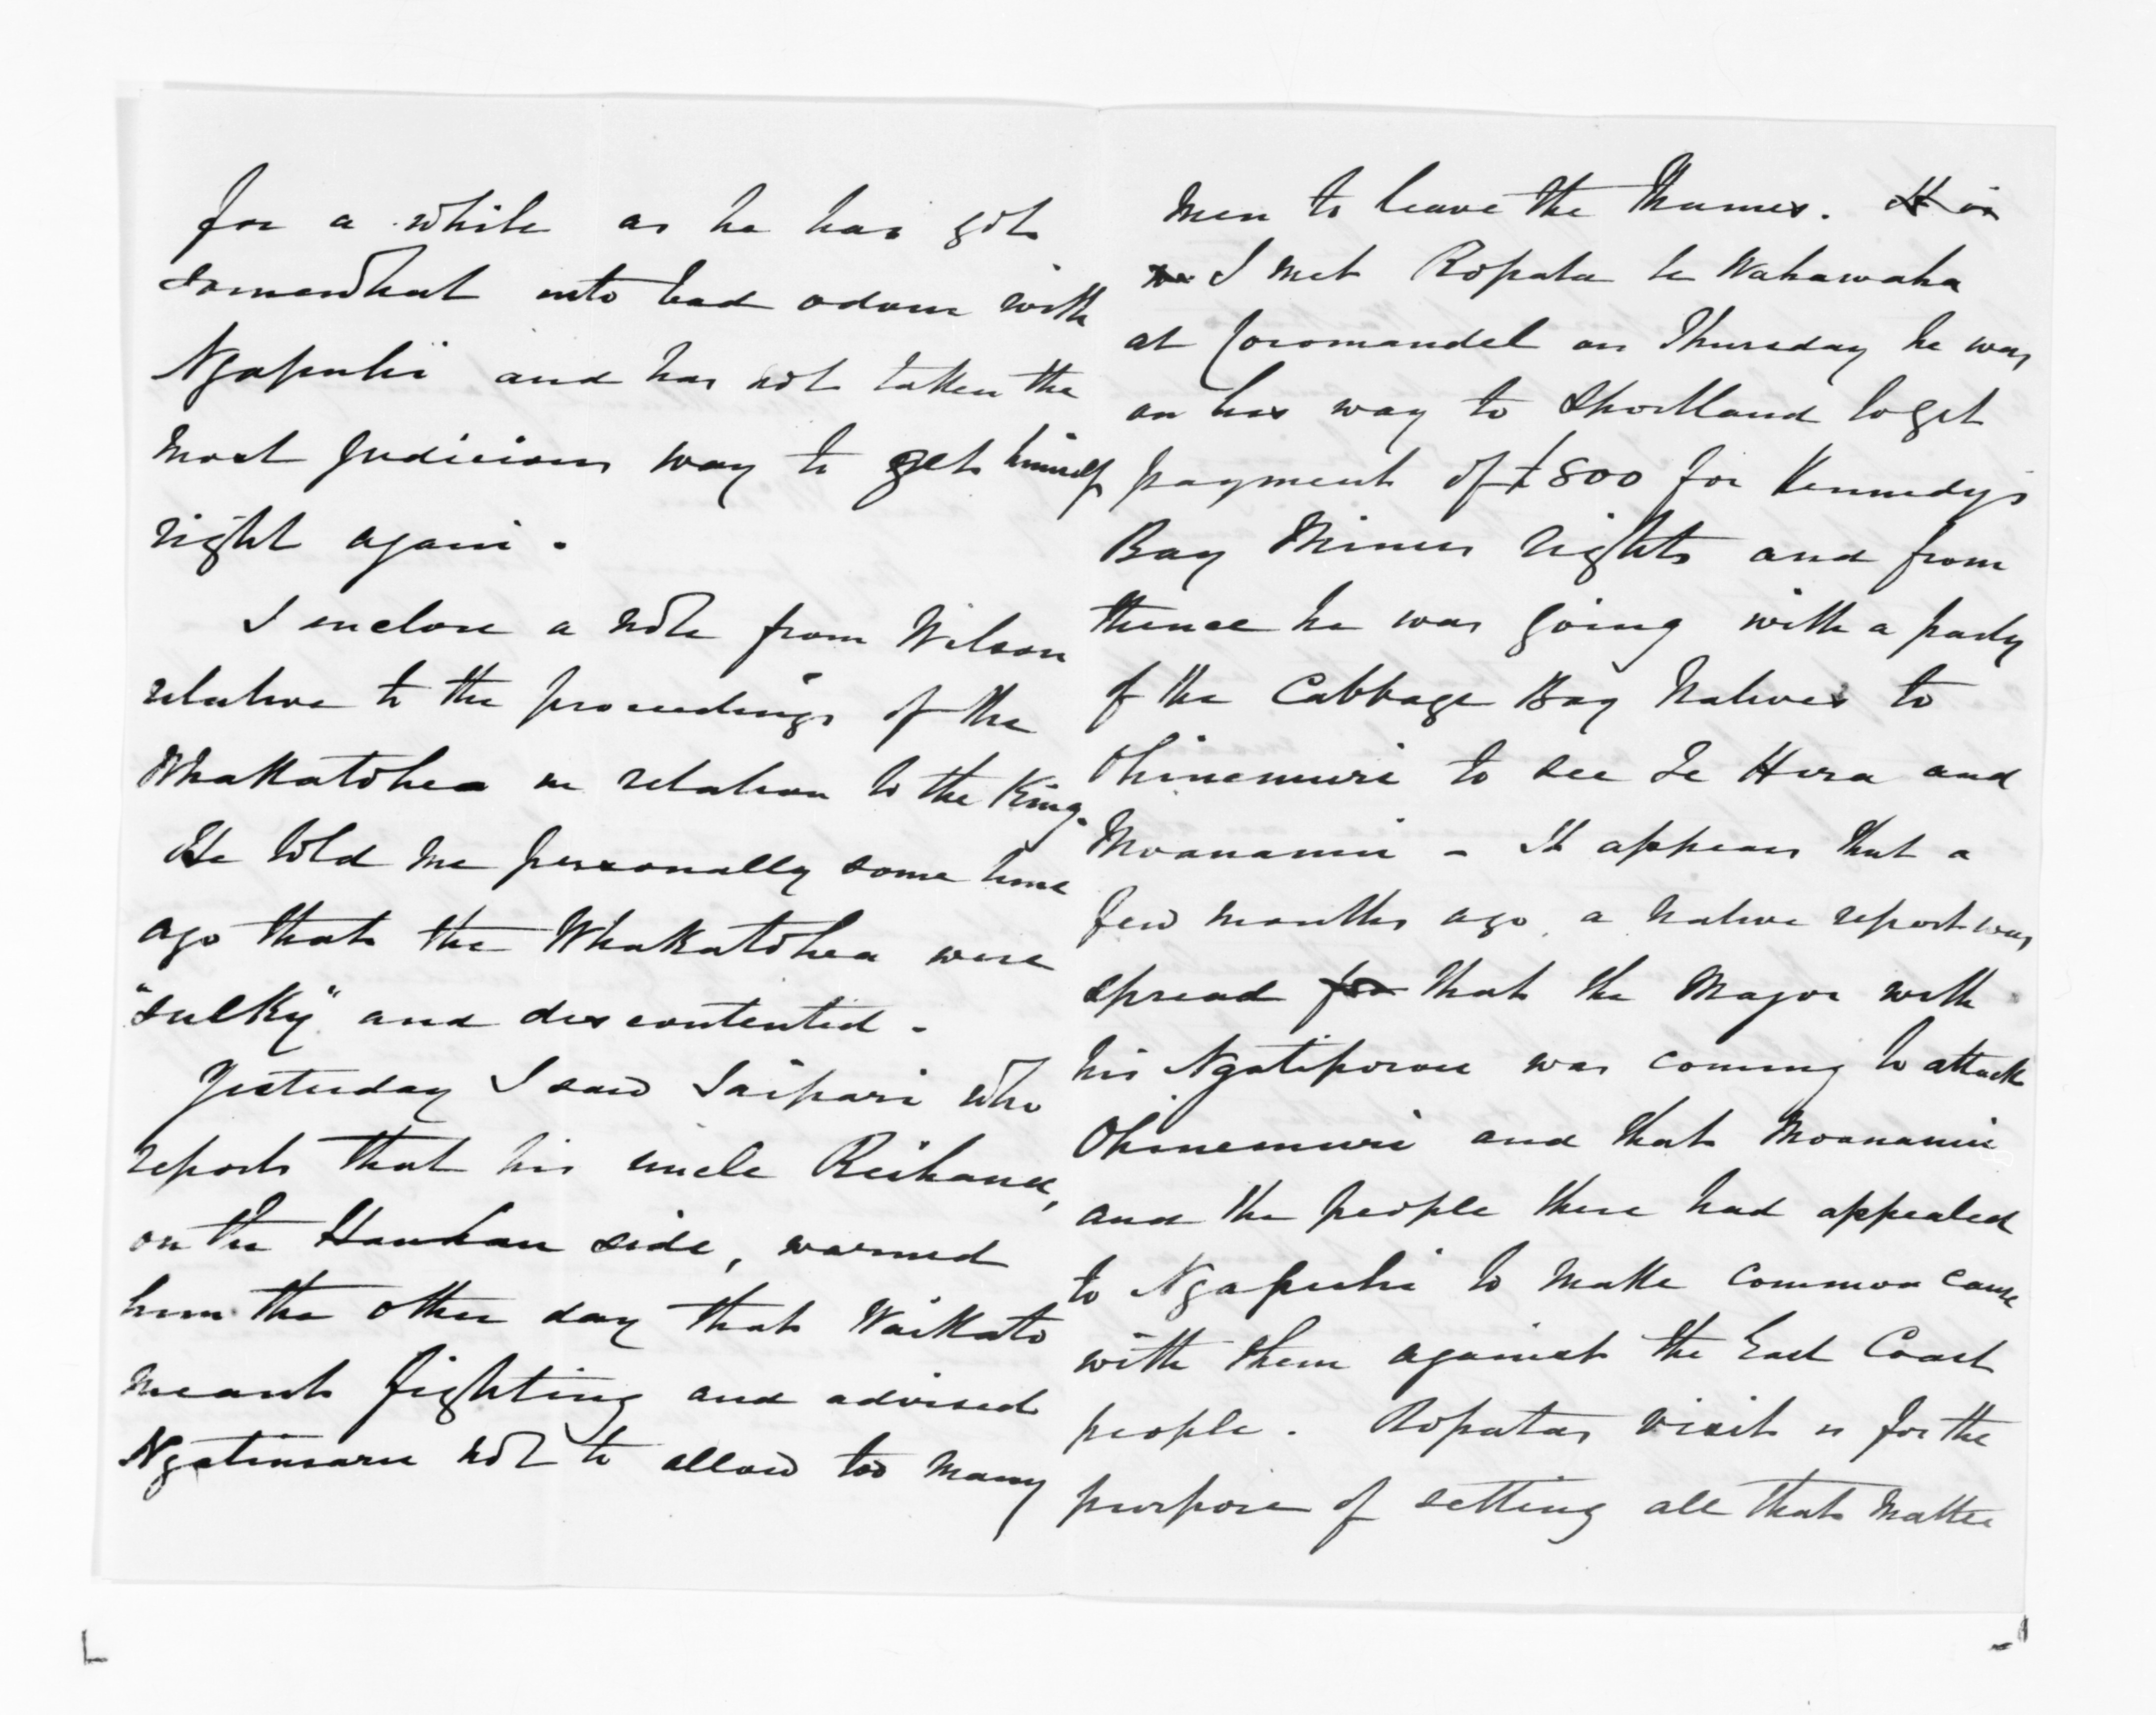 for a while as he has got
somewhat into bad odour with
Ngapuhi and has not taken the
most judicious way to get himself
right again.
I enclose a note from Wilson
relative to the proceedings of the
Whakatohea in relation to the King.
He told me personally some time
ago that the Whakatohea were
"sulky" and discontented -
Yesterday I saw Taipari who
reports that his uncle Reihana,
on the Hauhau side, warned
him the other day that Waikato
meant fighting and advised
Ngatimaru not to allow too many
men to leave the Thames.
I met Ropata te Wahawaha
at Coromandel on Thursday he was
on his way to Shortland to get
payment of £800 for Kennedy's
Bay Miners rights and from
thence he was going with a party
of the Cabbage Bay Natives to
Ohinemuri to see Te Hira and
Moananui - It appears that a
few months ago a native report was
spread for that the Major with
his Ngatiporou was coming to attack
Ohinemuri and that Moananui
and the people there had appealed
to Ngapuhi to make common cause
with them against the East Coast
people. Ropatas visit is for the
purpose of setting all that matter